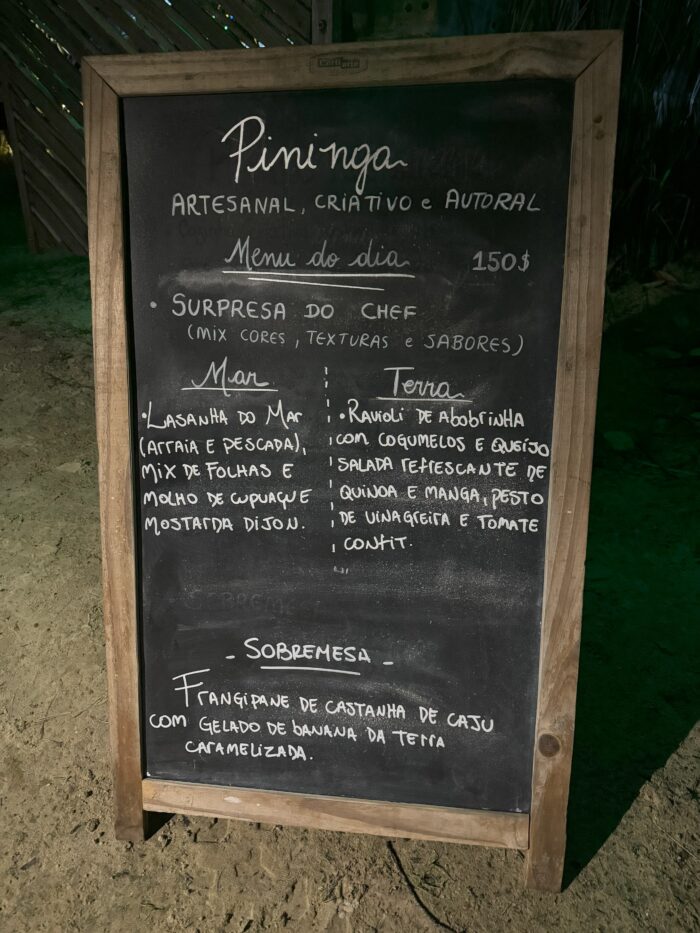 Pininga
ARTESANAL, CRIATIVO e AUTORAL
Menu do dia 150$
• SURPRESA DO CHEF
(MIX CORES, TEXTURAS e SABORES)
Mar
• LASANHA DO MAR
(ARRAIA E PESCADA),
MIX DE FOLHAS E
MOLHO DE CUPUAÇU E
MOSTARDA DIJON.
Terra
• RAVIOLI DE ABOBRINHA
COM COGUMELOS E QUEIJO
SALADA REFRESCANTE DE
QUINOA E MANGA, PESTO
DE VINAGREIRA E TOMATE
CONFIT.
- SOBREMESA -
FRANGIPANE DE CASTANHA DE CAJU
COM GELADO DE BANANA DA TERRA
CARAMELIZADA.